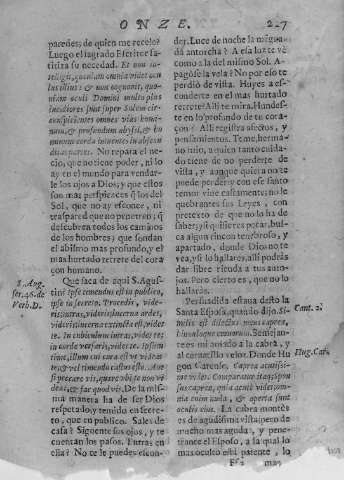 ONZE. 227
paredes; de quien me recelo?
Luego el sagrado Escritor sa-
tiriza su necedad. Et non in-
telligit, quoniam omnia videt ocu-
lus illius: & non cognovit, quo-
niam oculi Domini multo plus
lucidiores sunt super Solem cir-
cunspicientes omnes vias homi-
num, & profundum abyssi, & ho-
minum corda intuentes in abscon-
ditas partes. No repara el ne-
cio, que no tiene poder, ni lo
ay en el mundo para vendar-
le los ojos a Dios; y que estos
son mas perspicaces q̃ los del
Sol, que no ay esconce, ni
traspared que no penetren; q̃
descubren todos los caminos
de los hombres; que sondan
el abismo mas profundo, y el
mas hurtado retrete del cora-
çon humano.
Que saca de aqui S. Agus-
tin? Ipse timendus est in publico,
ipse in secreto. Procedis, vide-
ris: intras, videris: lucerna ardet,
videris: lucerna extincta est, vide-
te. In cubiculum intras, videt te;
in corde versaris, videt te. Ipsum
time, illum cui cura est ut videat
te, & vel timendo castus esto. Aut
si peccare vis, quære ubi te non vi-
deat, & fac quod vis. De la mis-
ma manera ha de ser Dios
respetado, y temido en secre-
to, que en publico. Sales de
casa? Siguente sus ojos, y te
cuentan los pasos. Entras en
ella? No te le puedes escon-
S. Aug.
ser. 46. de
Verb. D.
der. Luce de noche la mugrieuda
antorcha? A esa luz te vè
como a la del mismo Sol. A-
pagose la vela? No por eso te
perdiò de vista. Huyes a es-
conderte en el mas hurtado
retrete? Alli te mira. Hundes-
te en lo profundo de tu cora-
çon? Alli registra afectos, y
pensamientos. Teme, herma-
no mio, a quien tanto cuida-
do tiene de no perderte de
vista, y aunque quiera no te
puede perder; y con ese santo
temor vive castamente; no le
quebrantes sus Leyes, con
pretexto de que no lo ha de
saber; y si quisieres pecar, bus-
ca algun rincon tenebroso, y
apartado, donde Dios no te
vea, y si lo hallares, alli podràs
dar libre rienda a tus anto-
jos. Pero cierto es, que no lo
hallaràs.
Persuadida estaua desto la
Santa Esposa, quando dijo. Si-
milis est dilectus meus capreæ,
hinnuloque cervorum. Semejan-
te es mi amado a la cabra, y
al cornatillo veloz. Donde Hu-
gon Carense. Caprea acutissi-
mè videt. Comparatur itaq; Spon-
sus capreæ, quia acutè videt om-
nia enim nuda, & aperta sunt
oculis eius. La cabra montès
es de agudisima vista; pero de
mucho mas aguda, y pene-
trante el Esposo, a la qual lo
mas oculto està patente, lo
Cant. 2.
Hug. Car.
Ff 2 mas